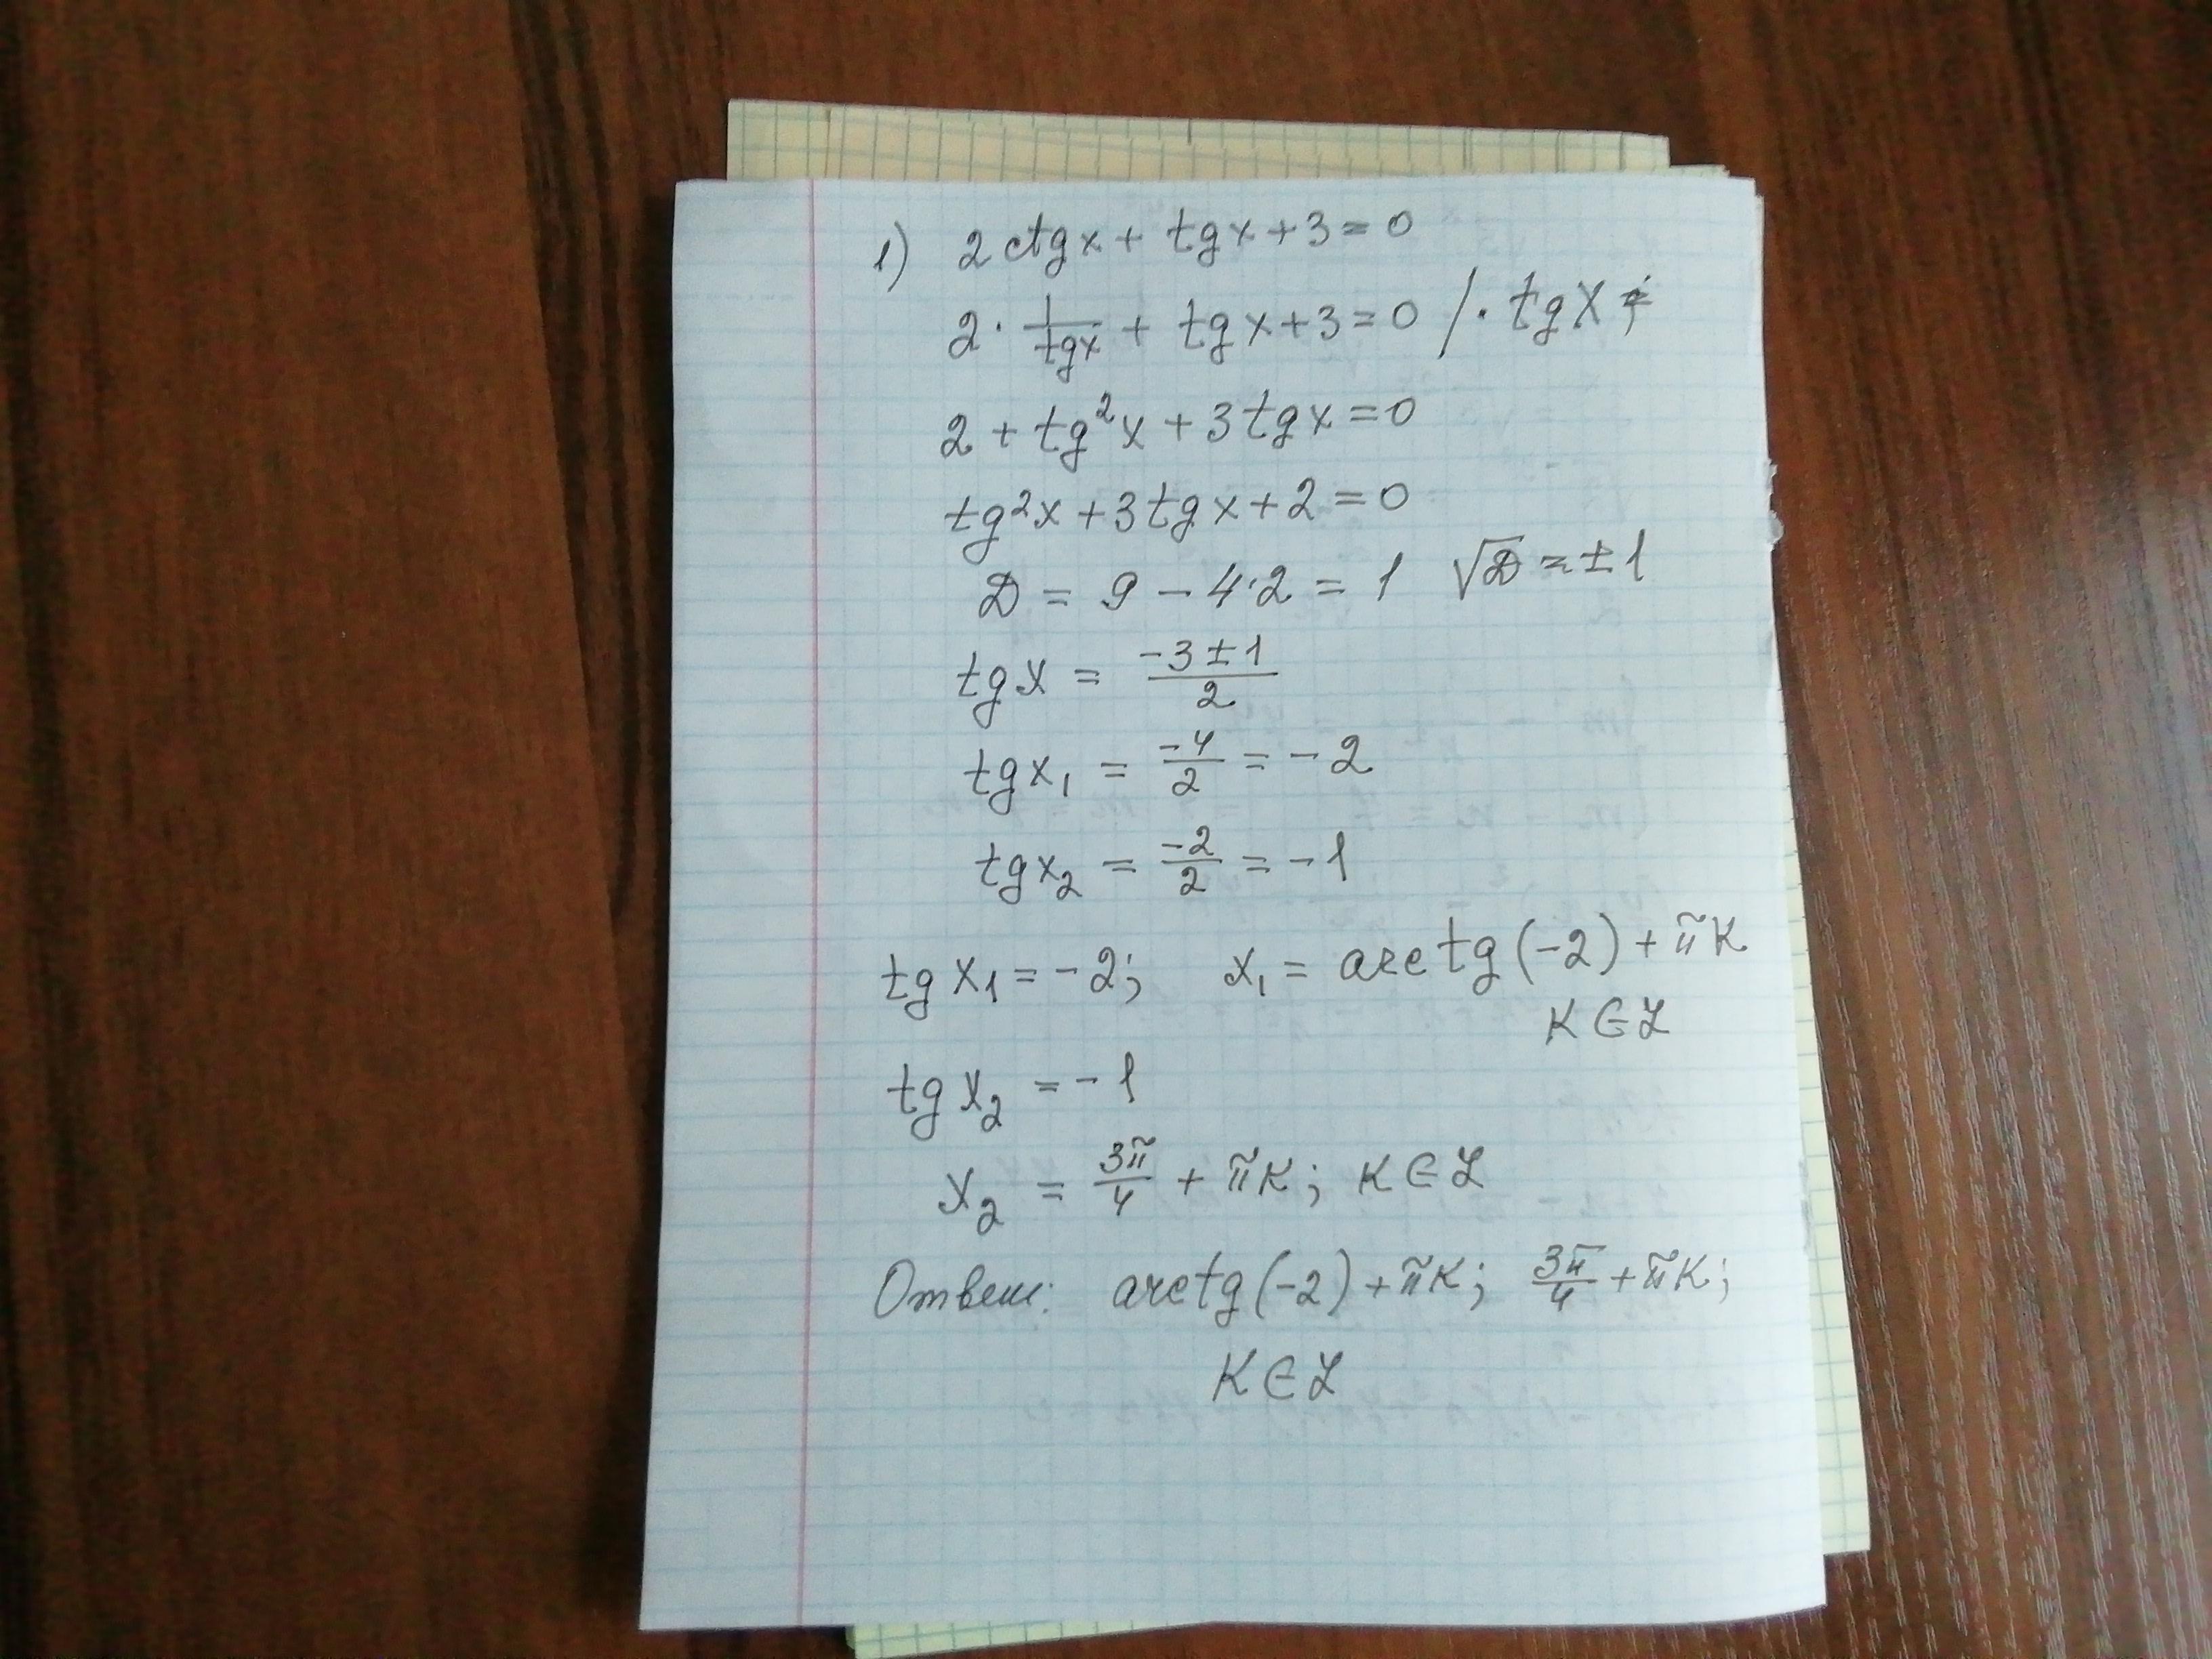 1) 2 ctgx + tgx + 3 = 0
2 · 1/tgx + tgx + 3 = 0 / · tgx ≠
2 + tg²x + 3tgx = 0
tg²x + 3tgx + 2 = 0
D = 9 - 4·2 = 1 √D = ±1
tgx = (-3 ± 1)/2
tgx₁ = -4/2 = -2
tgx₂ = -2/2 = -1
tgx₁ = -2; x₁ = arctg(-2) + πk
k ∈ Z
tgx₂ = -1
x₂ = 3π/4 + πk; k ∈ Z
Ответ: arctg(-2) + πk; 3π/4 + πk;
k ∈ Z